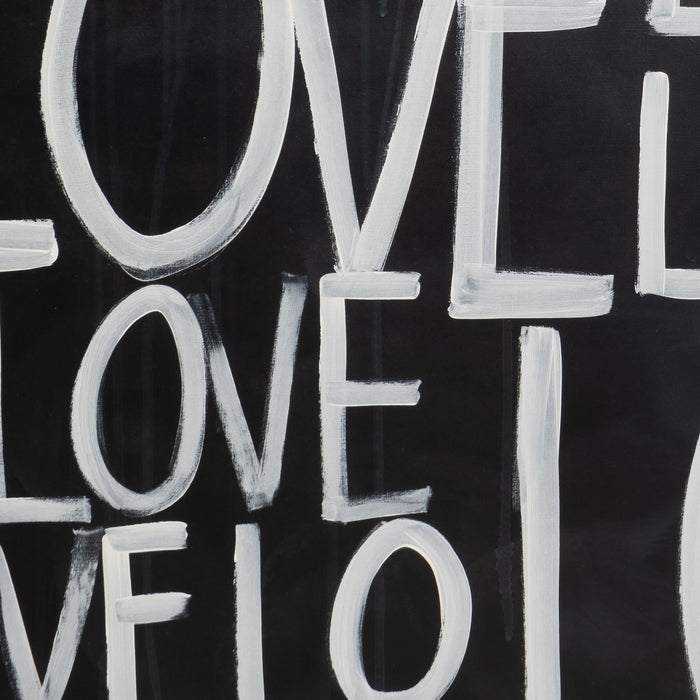 LOVE L
LOVE LO
VE LO